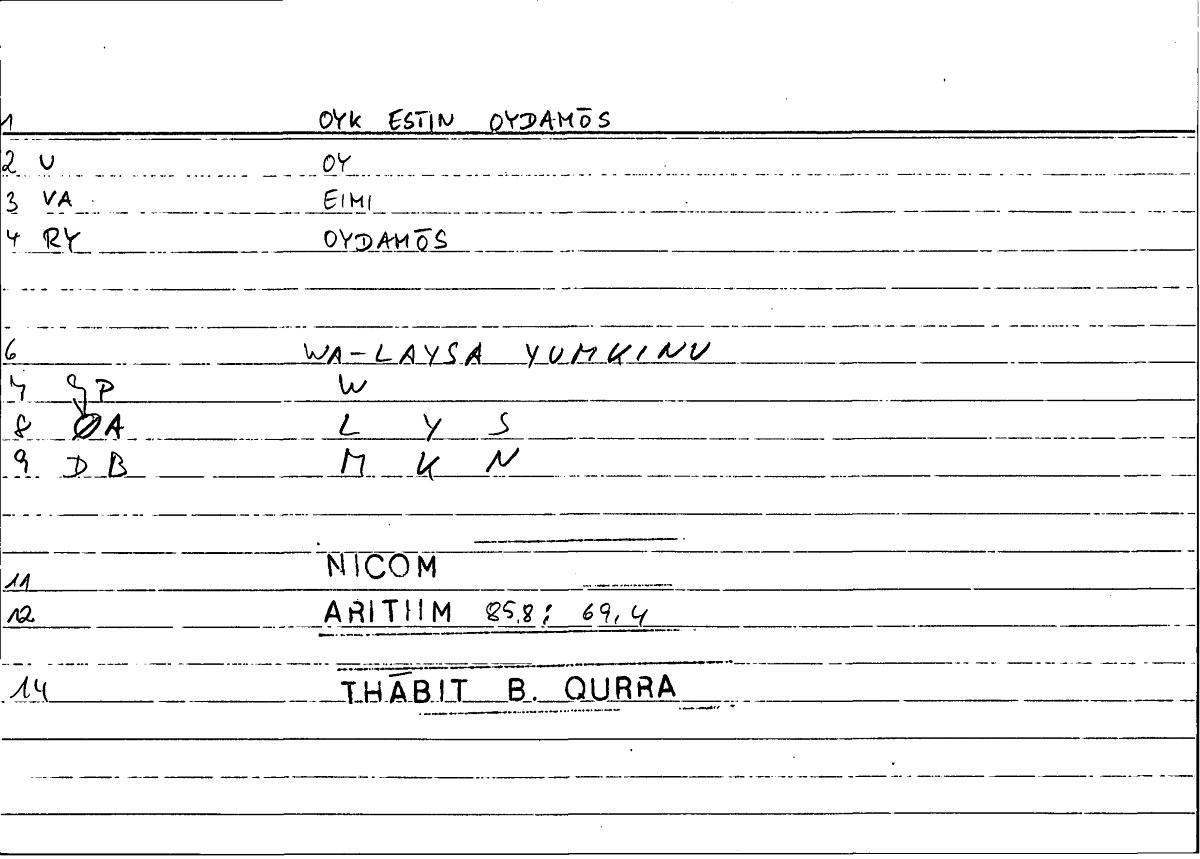 1 OYK ESTIN OYDAMŌS
2 U OY
3 VA EIMI
4 RY OYDAMŌS
6 WA-LAYSA YUMKINU
7 P W
8 A L Y S
9 DB M K N
11 NICOM
12 ARITHM 85,8; 69,4
14 THĀBIT B. QURRA